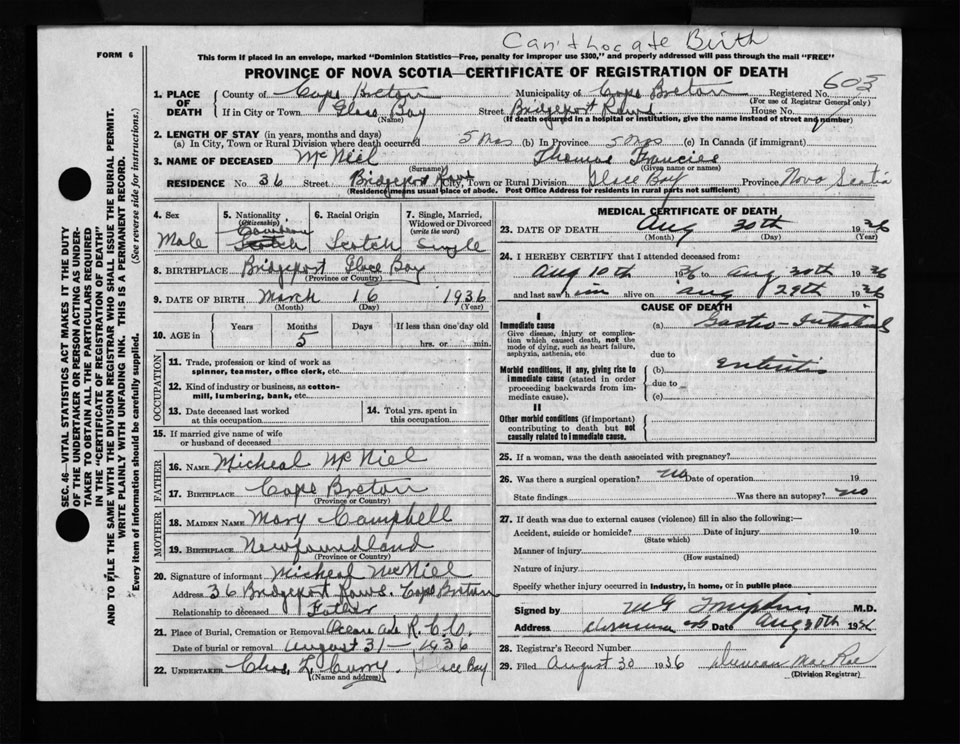 Can't Locate Birth
FORM 6
This form if placed in an envelope, marked "Dominion Statistics—Free, penalty for improper use $300," and properly addressed will pass through the mail "FREE"
PROVINCE OF NOVA SCOTIA—CERTIFICATE OF REGISTRATION OF DEATH
603
1. PLACE OF DEATH
County of Cape Breton Municipality of Cape Breton Registered No.
(For use of Registrar General only)
If in City or Town Glace Bay Street Bridgeport Rows House No.
(Name) (If death occurred in a hospital or institution, give name instead of street and number)
2. LENGTH OF STAY (in years, months and days)
(a) In City, Town or Rural Division where death occurred 5 Mos (b) In Province 5 Mos (c) In Canada (if immigrant)
3. NAME OF DECEASED McNiel Thomas Francies
(Surname) (Given name or names)
RESIDENCE No. 36 Street Bridgeport Rows City, Town or Rural Division Glace Bay Province Nova Scotia
(Residence means usual place of abode. Post Office Address for residents in rural parts not sufficient)
4. Sex
Male
5. Nationality
(Citizenship)
Canadian
Scotch
6. Racial Origin
Scotch
7. Single, Married, Widowed or Divorced
(write the word)
Single
8. BIRTHPLACE Bridgeport Glace Bay
(Province or Country)
9. DATE OF BIRTH March 16 1936
(Month) (Day) (Year)
10. AGE in Years Months Days If less than one day old
5 hrs. or min.
OCCUPATION
11. Trade, profession or kind of work as spinner, teamster, office clerk, etc.
12. Kind of industry or business, as cotton-mill, lumbering, bank, etc.
13. Date deceased last worked at this occupation
14. Total yrs. spent in this occupation
15. If married give name of wife or husband of deceased
FATHER
16. NAME Micheal McNiel
17. BIRTHPLACE Cape Breton
(Province or Country)
MOTHER
18. MAIDEN NAME Mary Campbell
19. BIRTHPLACE Newfoundland
(Province or Country)
20. Signature of informant Micheal McNiel
Address 36 Bridgeport Rows. Cape Breton
Relationship to deceased Father
21. Place of Burial, Cremation or Removal R.C.
Date of burial or removal August 31— 1936
22. UNDERTAKER Chas. Curry. Glace Bay
(Name and address)
MEDICAL CERTIFICATE OF DEATH
23. DATE OF DEATH Aug 30th 1936
(Month) (Day) (Year)
24. I HEREBY CERTIFY that I attended deceased from:
Aug 10th 1936 to Aug 30th 1936
and last saw him alive on Aug 29th 1936
CAUSE OF DEATH
I
Immediate cause (a) Gastro-Intestinal
Give disease, injury or complication which caused death, not the mode of dying, such as heart failure, asphyxia, asthenia, etc.
due to
Morbid conditions, if any, giving rise to immediate cause (stated in order proceeding backwards from immediate cause).
(b) Enteritis
due to
(c)
II
Other morbid conditions (if important) contributing to death but not causally related to immediate cause.
25. If a woman, was the death associated with pregnancy?
26. Was there a surgical operation? no Date of operation 19
State findings Was there an autopsy? no
27. If death was due to external causes (violence) fill in also the following:—
Accident, suicide or homicide? Date of injury 19
(State which)
Manner of injury
(How sustained)
Nature of injury
Specify whether injury occurred in industry, in home, or in public place
Signed by MG Tompkins M.D.
Address Date Aug 30th 1936
28. Registrar's Record Number
29. Filed August 30 1936 Duncan MacRae
(Division Registrar)
SEC. 46—VITAL STATISTICS ACT MAKES IT THE DUTY
OF THE UNDERTAKER OR PERSON ACTING AS UNDER-
TAKER TO OBTAIN ALL THE PARTICULARS REQUIRED
IN THE "CERTIFICATE OF REGISTRATION OF DEATH"
AND TO FILE THE SAME WITH THE DIVISION REGISTRAR WHO SHALL ISSUE THE BURIAL PERMIT.
WRITE PLAINLY WITH UNFADING INK. THIS IS A PERMANENT RECORD.
Every item of information should be carefully supplied. (See reverse side for instructions.)